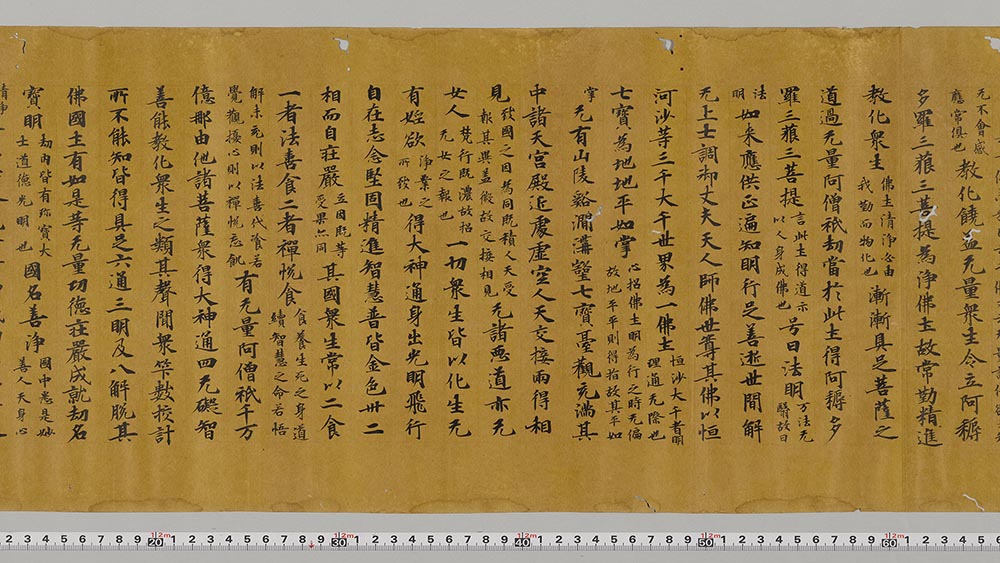 无不會感
應常俱也
教化饒益无量衆生令立阿耨
多羅三藐三菩提為淨佛土故常勤精進
教化衆生
佛土清淨必由
我勤而物化也
漸漸具足菩薩之
道過无量阿僧祇劫當於此土得阿耨多
羅三藐三菩提
言此土得道示
以人身成佛也
号曰法明
万法无
翳故曰
法
明
如来應供正遍知明行足善逝世間解
无上士調御丈夫天人師佛世尊其佛以恒
河沙等三千大千世界為一佛土
恒沙大千者明
理道无際也
七寶為地地平如掌
心招佛土明為行之時无偏
故地平平則得抬故其平如
掌
无有山陵谿澗溝壑七寶臺觀充滿其
中諸天宮殿近處虛空人天交接兩得相
見
致國之因為同既積人天受
報其異故交接相見
无諸惡道亦无
女人
梵行既濃故招
无女之報也
一切衆生皆以化生无
有婬欲
淨業之
所致也
得大神通身出光明飛行
自在志念堅固精進智慧普皆金色卅二
相而自莊嚴
立因既等
受果亦同
其國衆生常以二食
一者法喜食二者禪悅食
食養生死之身道
續智慧之命若悟
解未充則以法喜代食若
覺觀擾心則以禪悅忘飢
有无量阿僧祇千万
億那由他諸菩薩衆得大神通四无礙智
善能教化衆生之類其聲聞衆筭數挍計
所不能知皆得具足六通三明及八解脫其
佛國土有如是等无量功德莊嚴成就劫名
寶明
劫内皆有珎寶大
士道德光明也
國名善淨
國中悉是妙
善人天身心
清淨